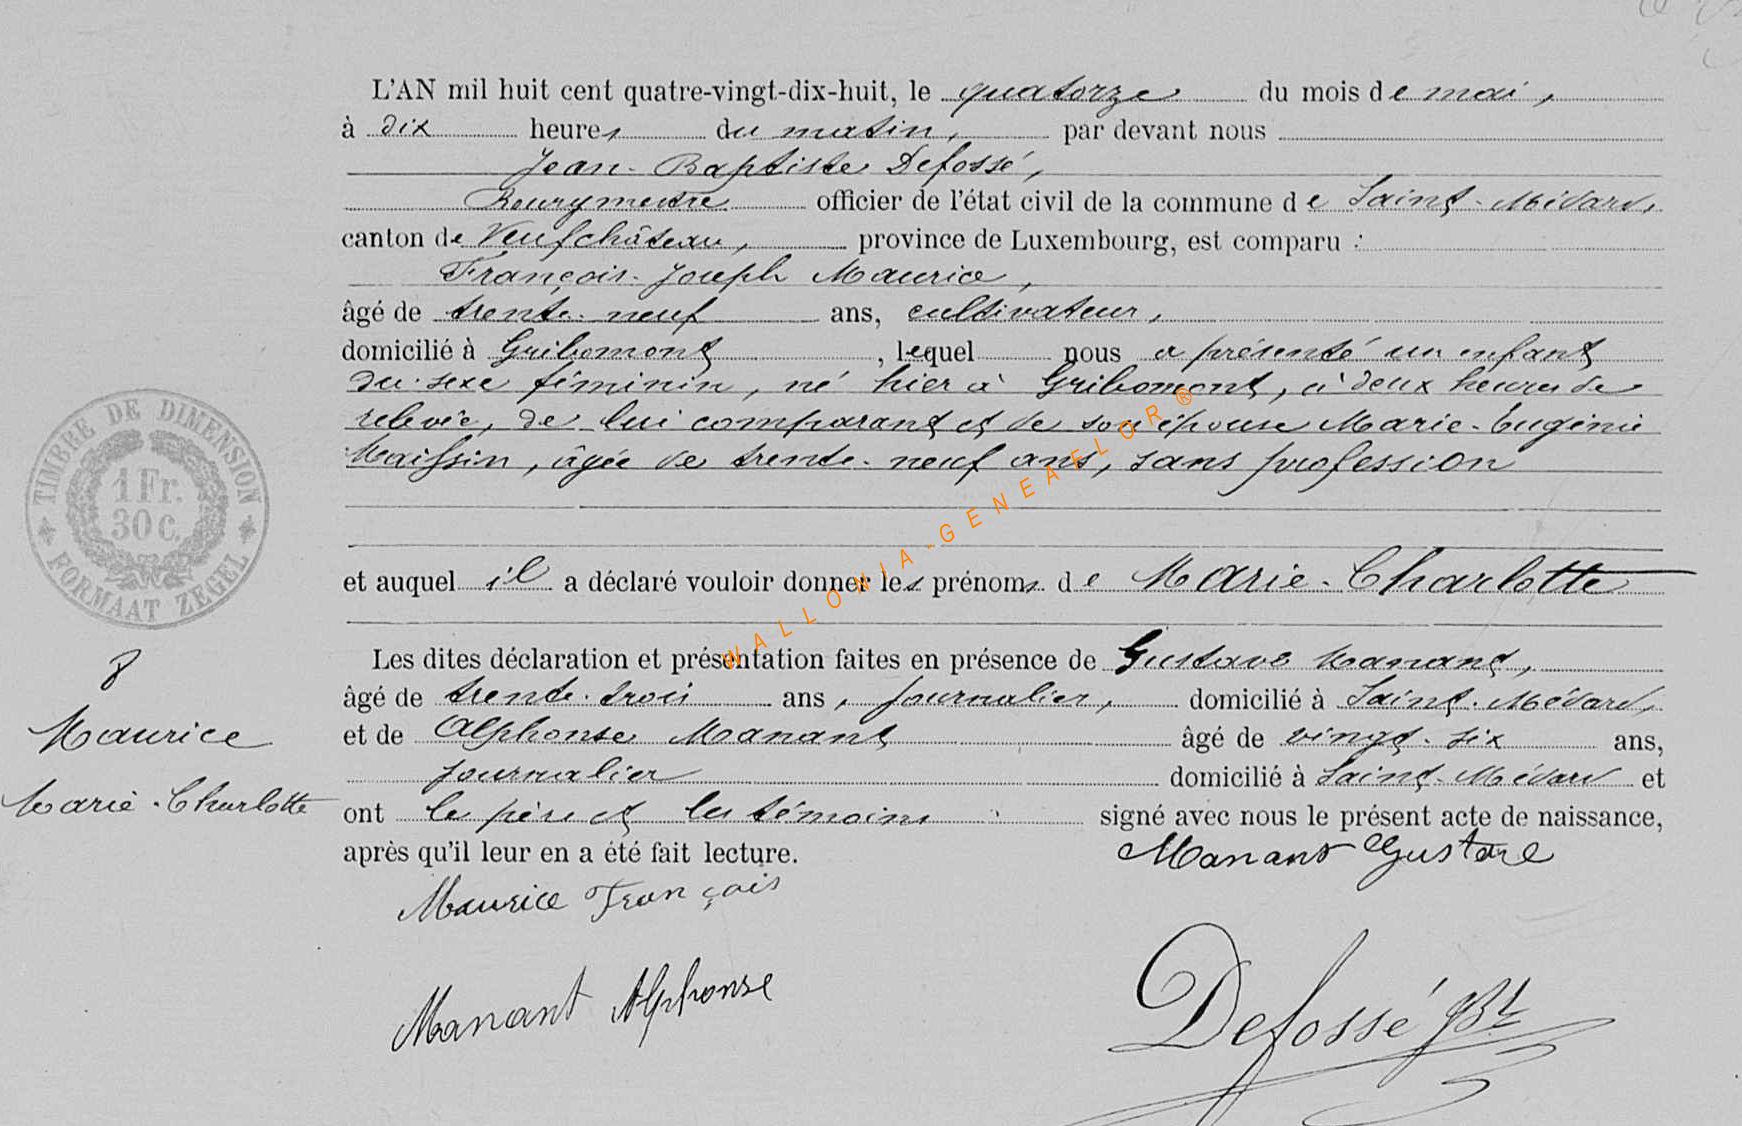 L'AN mil huit cent quatre-vingt-dix-huit, le quatorze du mois de mai,
à dix heures du matin, par devant nous
Jean-Baptiste Defossé,
Bourgmestre officier de l'état civil de la commune de Saint-Médard,
canton de Neufchâteau, province de Luxembourg, est comparu :
François-Joseph Maurice,
âgé de trente-neuf ans, cultivateur,
domicilié à Gribomont, lequel nous a présenté un enfant
du sexe féminin, né hier à Gribomont, à deux heures de
relevée, de lui comparant et de son épouse Marie-Eugénie
Maissin, âgée de trente-neuf ans, sans profession
et auquel il a déclaré vouloir donner les prénoms de Marie-Charlotte
Les dites déclaration et présentation faites en présence de Gustave Manant,
âgé de trente-trois ans, journalier, domicilié à Saint-Médard,
et de Alphonse Manant âgé de vingt-six ans,
journalier domicilié à Saint-Médard et
ont le père et les témoins signé avec nous le présent acte de naissance,
après qu'il leur en a été fait lecture.
Manant Gustave
Maurice François
Manant Alphonse
Defossé JBt
TIMBRE DE DIMENSION
1 Fr.
30 C.
FORMAAT ZEGEL
8
Maurice
Marie-Charlotte
WALLONIA-GENEAFLOR ®